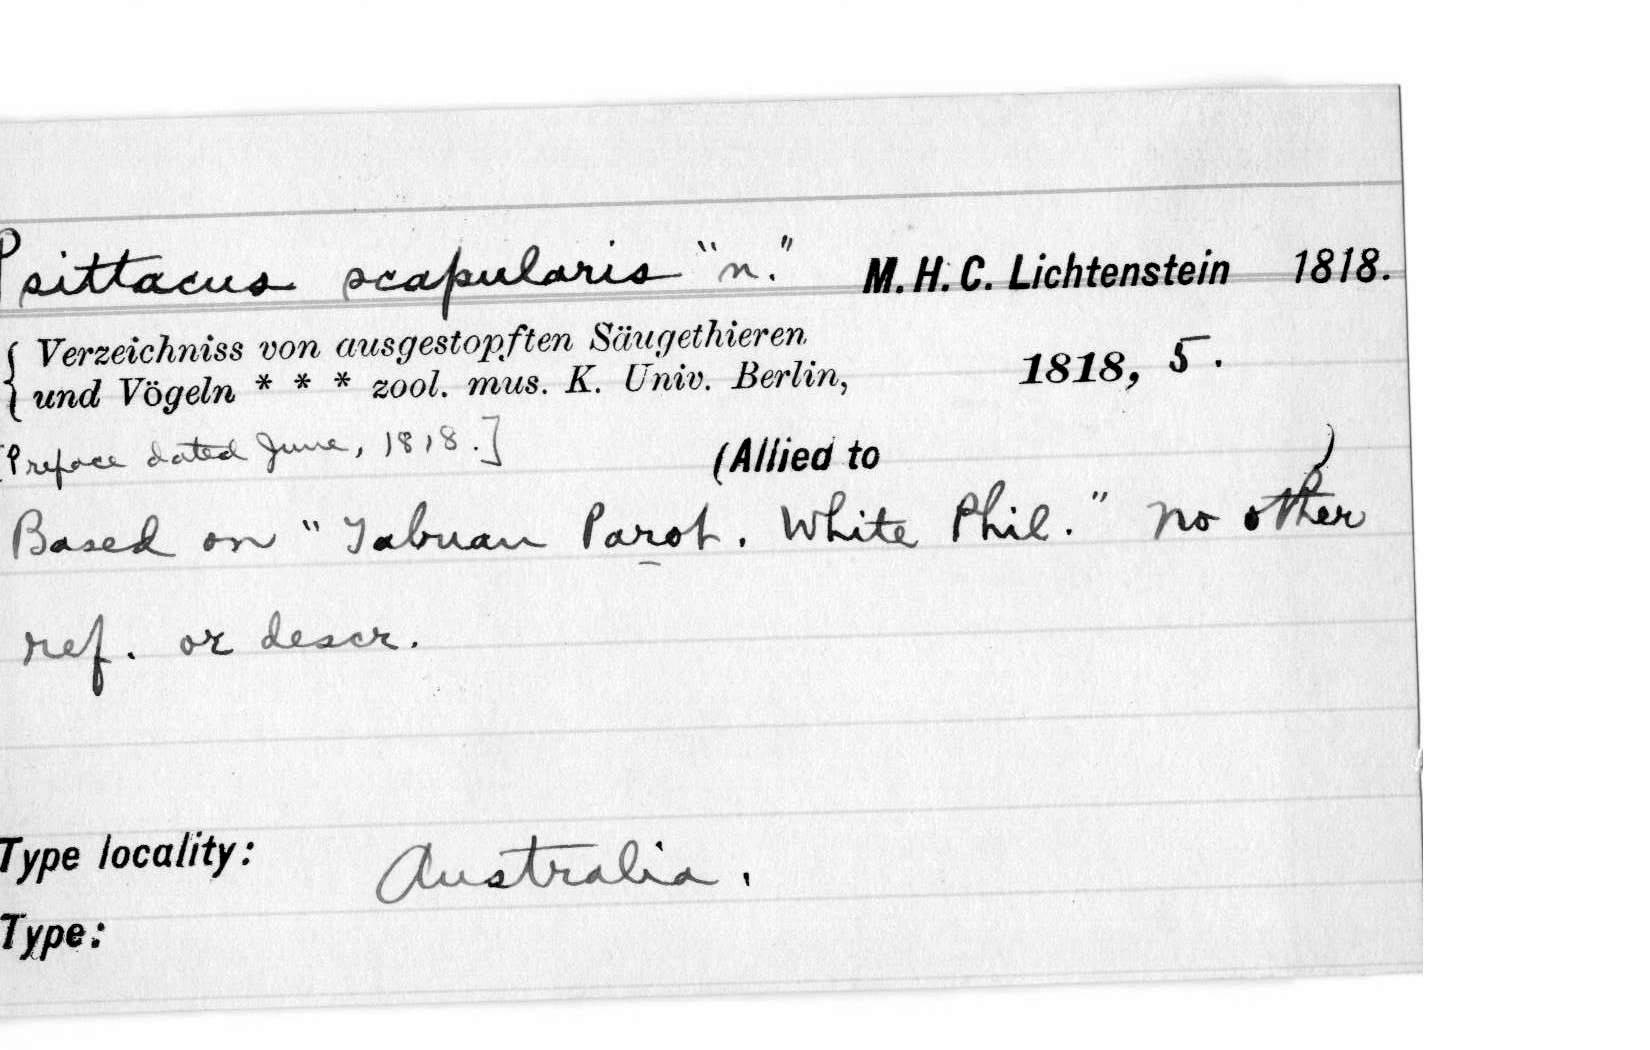 Psittacus scapularis "n." M. H. C. Lichtenstein 1818.
{ Verzeichniss von ausgestopften Säugethieren
{ und Vögeln * * * zool. mus. K. Univ. Berlin, 1818, 5.
[Preface dated June, 1818.]
(Allied to )
Based on "Tabuan Parot. White Phil." no other
ref. or descr.
Type locality: Australia.
Type: